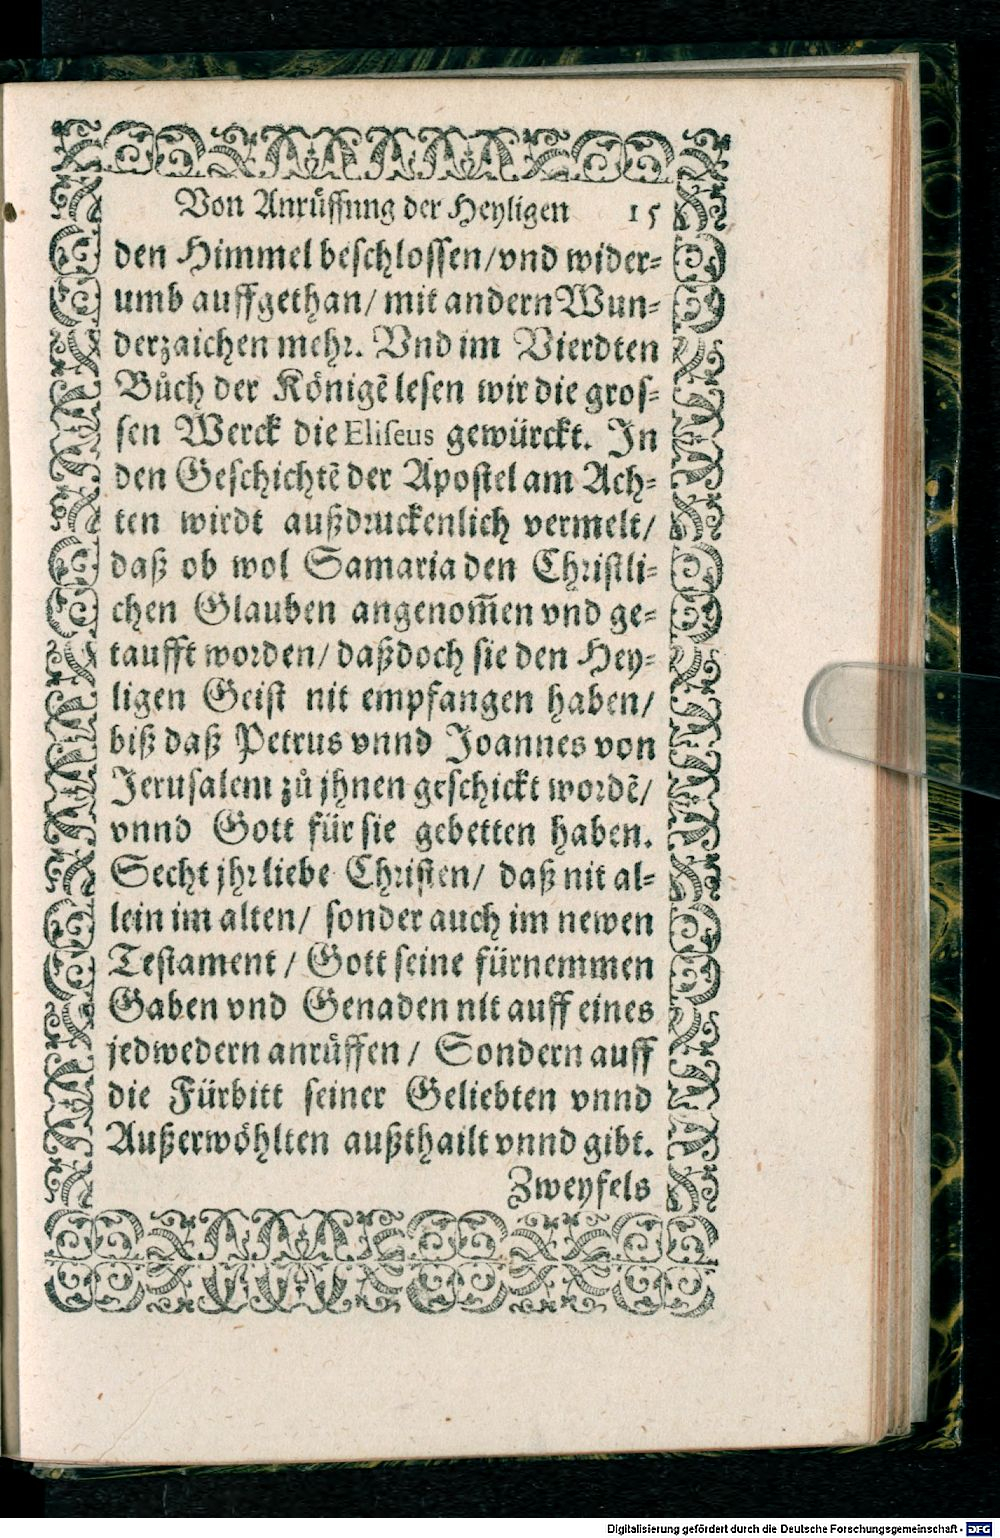 Von Anrůffnng der Heyligen 15
den Himmel beschlossen/vnd wider-
umb auffgethan/ mit andern Wun-
derzaichen mehr. Vnd im Vierdten
Bůch der Königẽ lesen wir die gros-
sen Werck die Eliseus gewürckt. In
den Geschichtẽ der Apostel am Ach-
ten wirdt außdruckenlich vermelt/
daß ob wol Samaria den Christli-
chen Glauben angenom̃en vnd ge-
taufft worden/ daß doch sie den Hey-
ligen Geist nit empfangen haben/
biß daß Petrus vnnd Joannes von
Jerusalem zů jhnen geschickt wordẽ/
vnnd Gott für sie gebetten haben.
Secht jhr liebe Christen/ daß nit al-
lein im alten/ sonder auch im newen
Testament / Gott seine fürnemmen
Gaben vnd Genaden nit auff eines
jedwedern anrůffen / Sondern auff
die Fürbitt seiner Geliebten vnnd
Außerwöhlten außthailt vnnd gibt.
Zweyfels
Digitalisierung gefördert durch die Deutsche Forschungsgemeinschaft - DFG